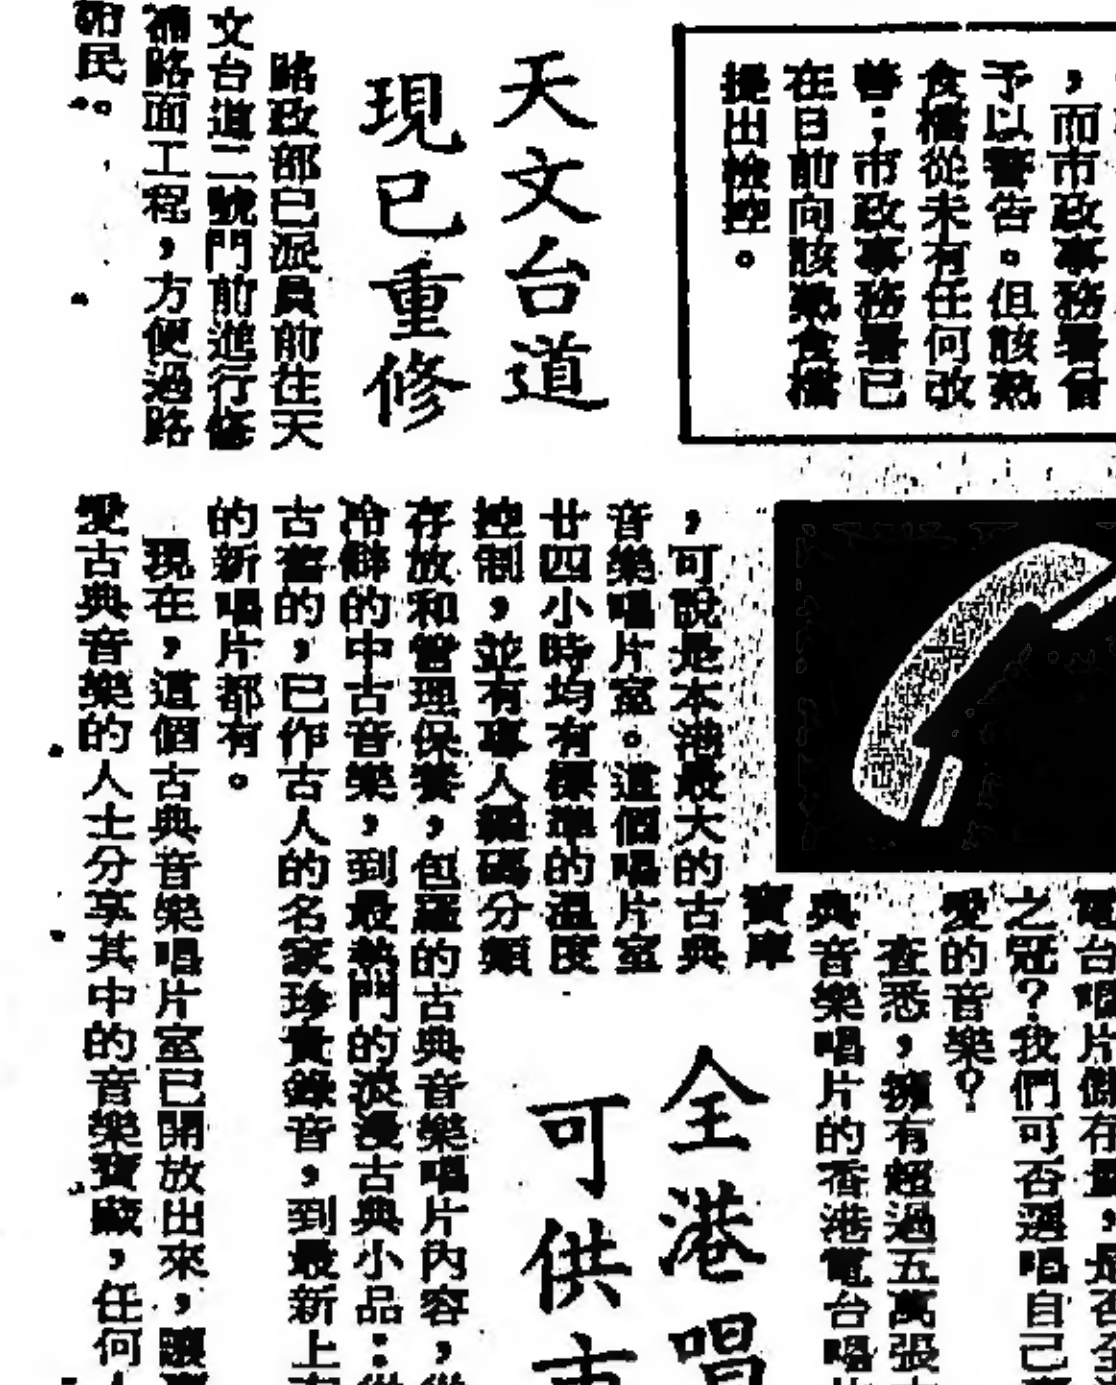 ，而市政事務署曾
予以警告。但該熟
食檔從未有任何改
善；市政事務署已
在日前向該熟食檔
提出檢控。
天文台道
現已重修
路政部已派員前往天
文台道二號門前進行修
補路面工程，方便過路
市民。
電台唱片儲存量，是否全港
之冠？我們可否選唱自己喜
愛的音樂？
查悉，擁有超過五萬張古
典音樂唱片的香港電台唱片
寶庫
，可說是本港最大的古典
音樂唱片室。這個唱片室
廿四小時均有標準的溫度
控制，並有專人編碼分類
存放和管理保養，包羅的古典音樂唱片內容，從
冷僻的中古音樂，到最熱門的浪漫古典小品；從
古舊的，已作古人的名家珍貴錄音，到最新上市
的新唱片都有。
現在，這個古典音樂唱片室已開放出來，讓喜
愛古典音樂的人士分享其中的音樂寶藏，任何人
全港唱
可供市